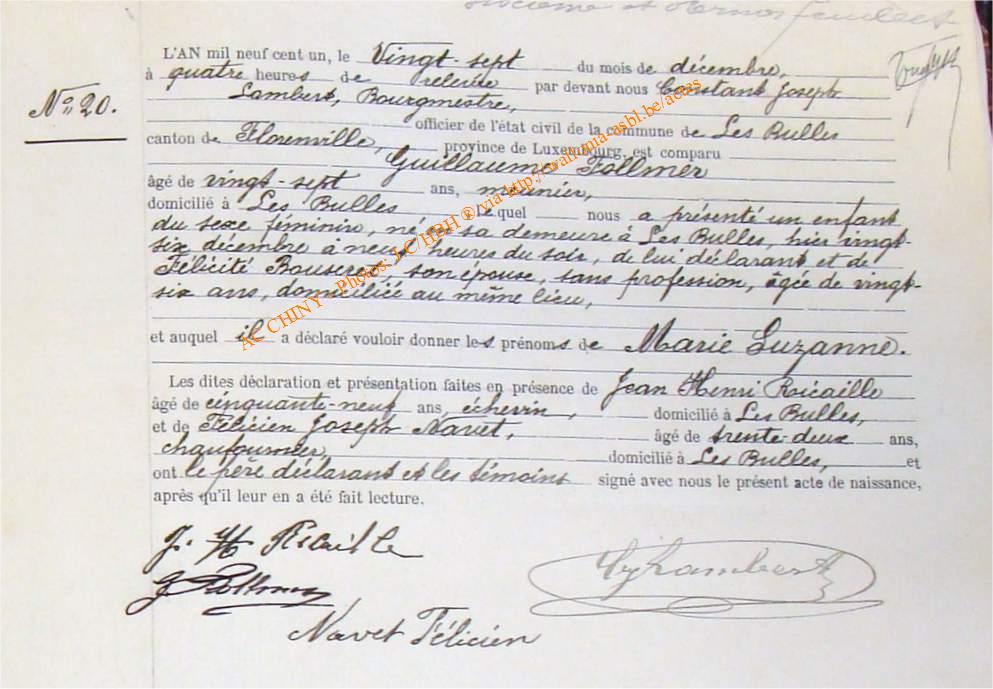 L'AN mil neuf cent un, le Vingt-sept du mois de décembre,
à quatre heures de relevée par devant nous Constant Joseph
Nº 20.
Lambert, Bourgmestre,
officier de l'état civil de la commune de Les Bulles
canton de Florenville, province de Luxembourg, est comparu
Guillaume Follmer
âgé de vingt-sept ans, meunier,
domicilié à Les Bulles Lequel nous a présenté un enfant
du sexe féminin, né en sa demeure à Les Bulles, hier vingt-
six décembre à neuf heures du soir, de lui déclarant et de
Félicité son épouse, sans profession, âgée de vingt-
six ans, domiciliée au même lieu,
et auquel il a déclaré vouloir donner les prénoms de Marie Suzanne.
Les dites déclaration et présentation faites en présence de Jean Henri Ricaille
âgé de cinquante-neuf ans, échevin, domicilié à Les Bulles,
et de Félicien Joseph Navet, âgé de trente-deux ans,
chaufournier, domicilié à Les Bulles, et
ont le père déclarant et les témoins signé avec nous le présent acte de naissance,
après qu'il leur en a été fait lecture.
J. H Ricaille
G Follmer
Navet Félicien
CJLambert
AC CHINY - Photos: J-C/HBH ® via http://wallonia-asbl.be/actes